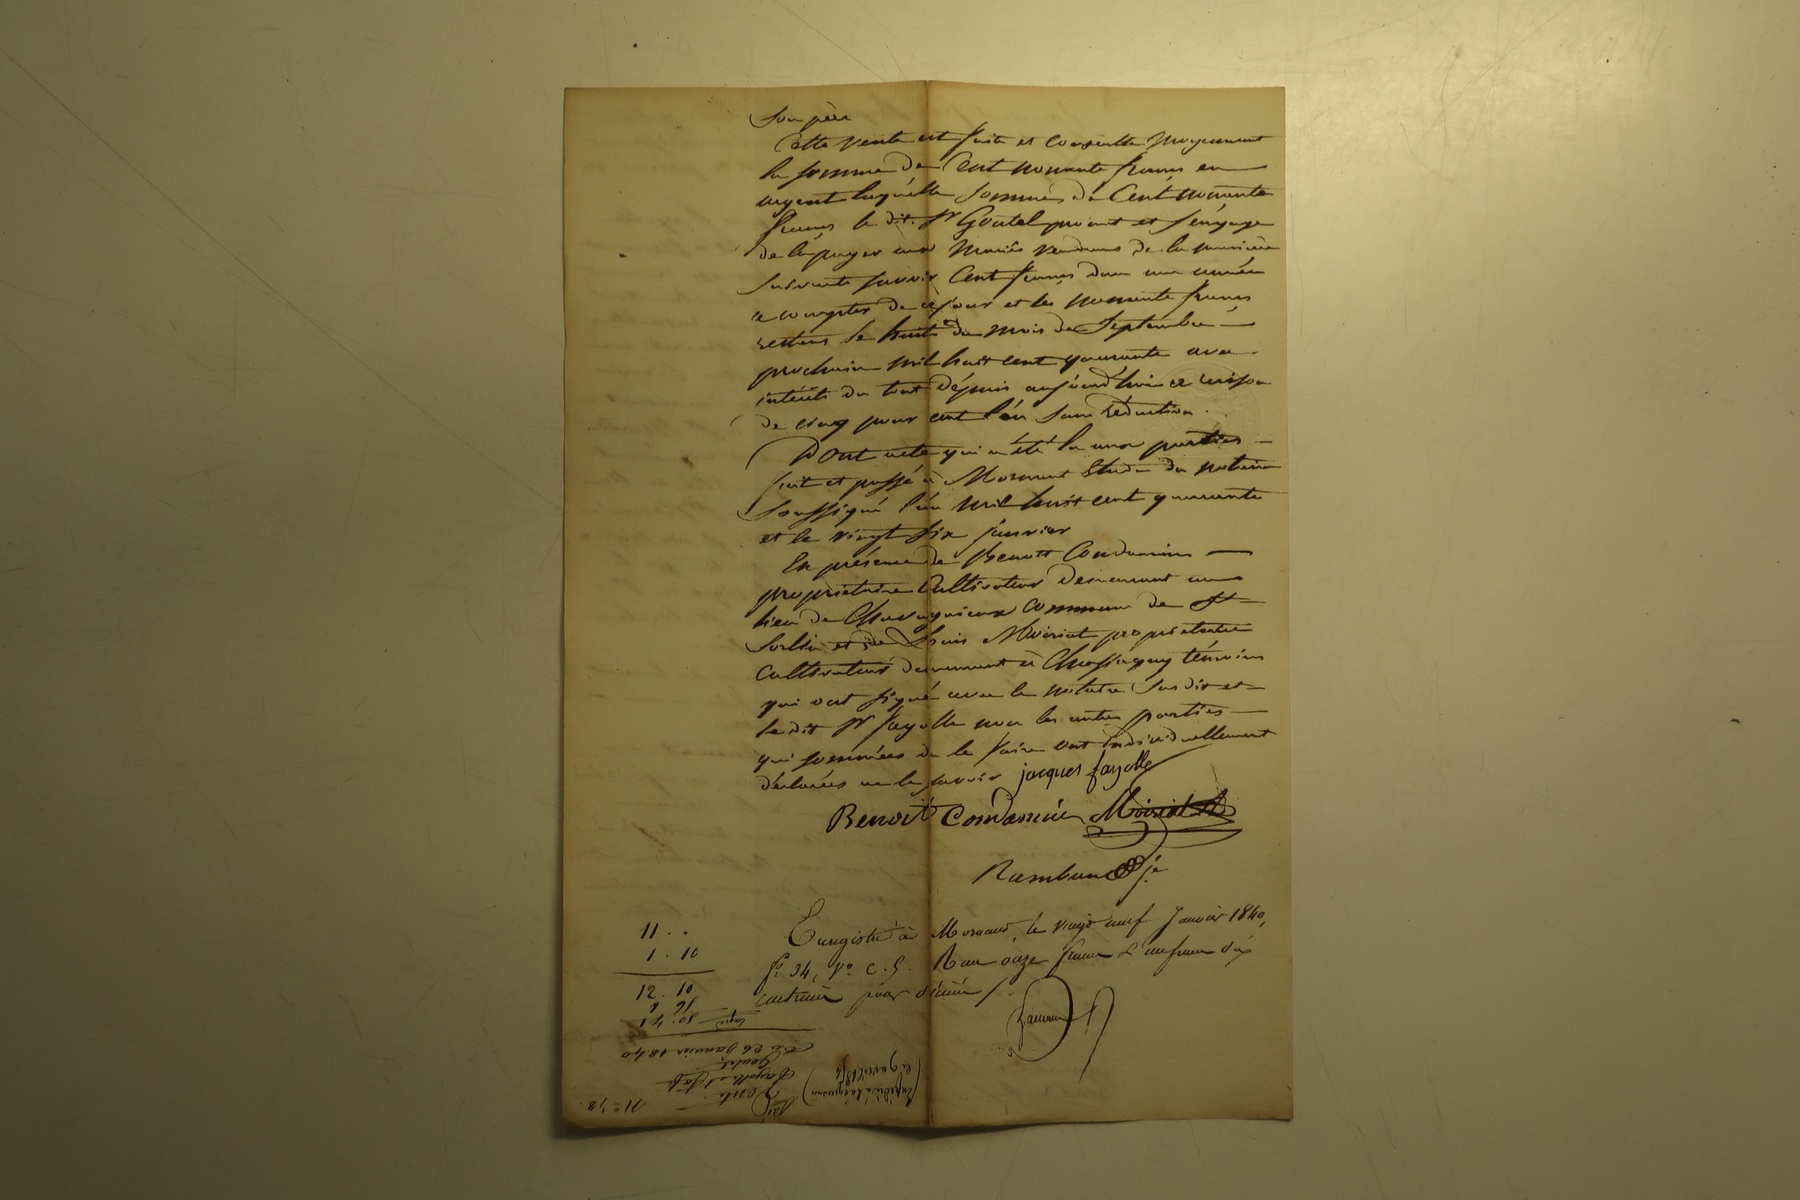 son père
Cette vente est faite et consentie moyennant
la somme de Cent nonante francs en
argent laquelle somme de Cent nonante
francs le dit Sr Goutel promet et s'engage
de la payer aux mariés vendeurs de la manière
suivante savoir Cent francs dans une année
a compter de ce jour et les nonante francs
restans le huit du mois de Septembre
prochain mil huit cent quarante avec
intérêts du tout dépuis aujourd'hui a raison
de cinq pour cent l'an sans réduction.
Dont acte qui a été lu aux parties
fait et passé à Mornant Etude du notaire
soussigné l'an mil huit cent quarante
et le vingt six janvier
En présence de Benoit Condamin
propriétaire Cultivateur demeurant au
lieu de Chavagnieux commune de St
Sorlin et de Louis Moiriat propriétaire
Cultivateur demeurant à Chassagny témoins
qui ont signé avec le notaire susdit et
le dit Sr fayolle non les autres parties
qui sommées de le faire ont individuellement
déclarées ne le savoir jacques fayolle
Benoit Condamin Moiriat
Rambaud je
Enregistré à Mornant, le vingt neuf Janvier 1840,
fo 34, Vo C. 5. Reçu onze francs & un franc dix
centimes pour décime
11 . .
1 . 10
12 . 10
Du 26 Janvier 1840
Goutel
Vente
No 78.